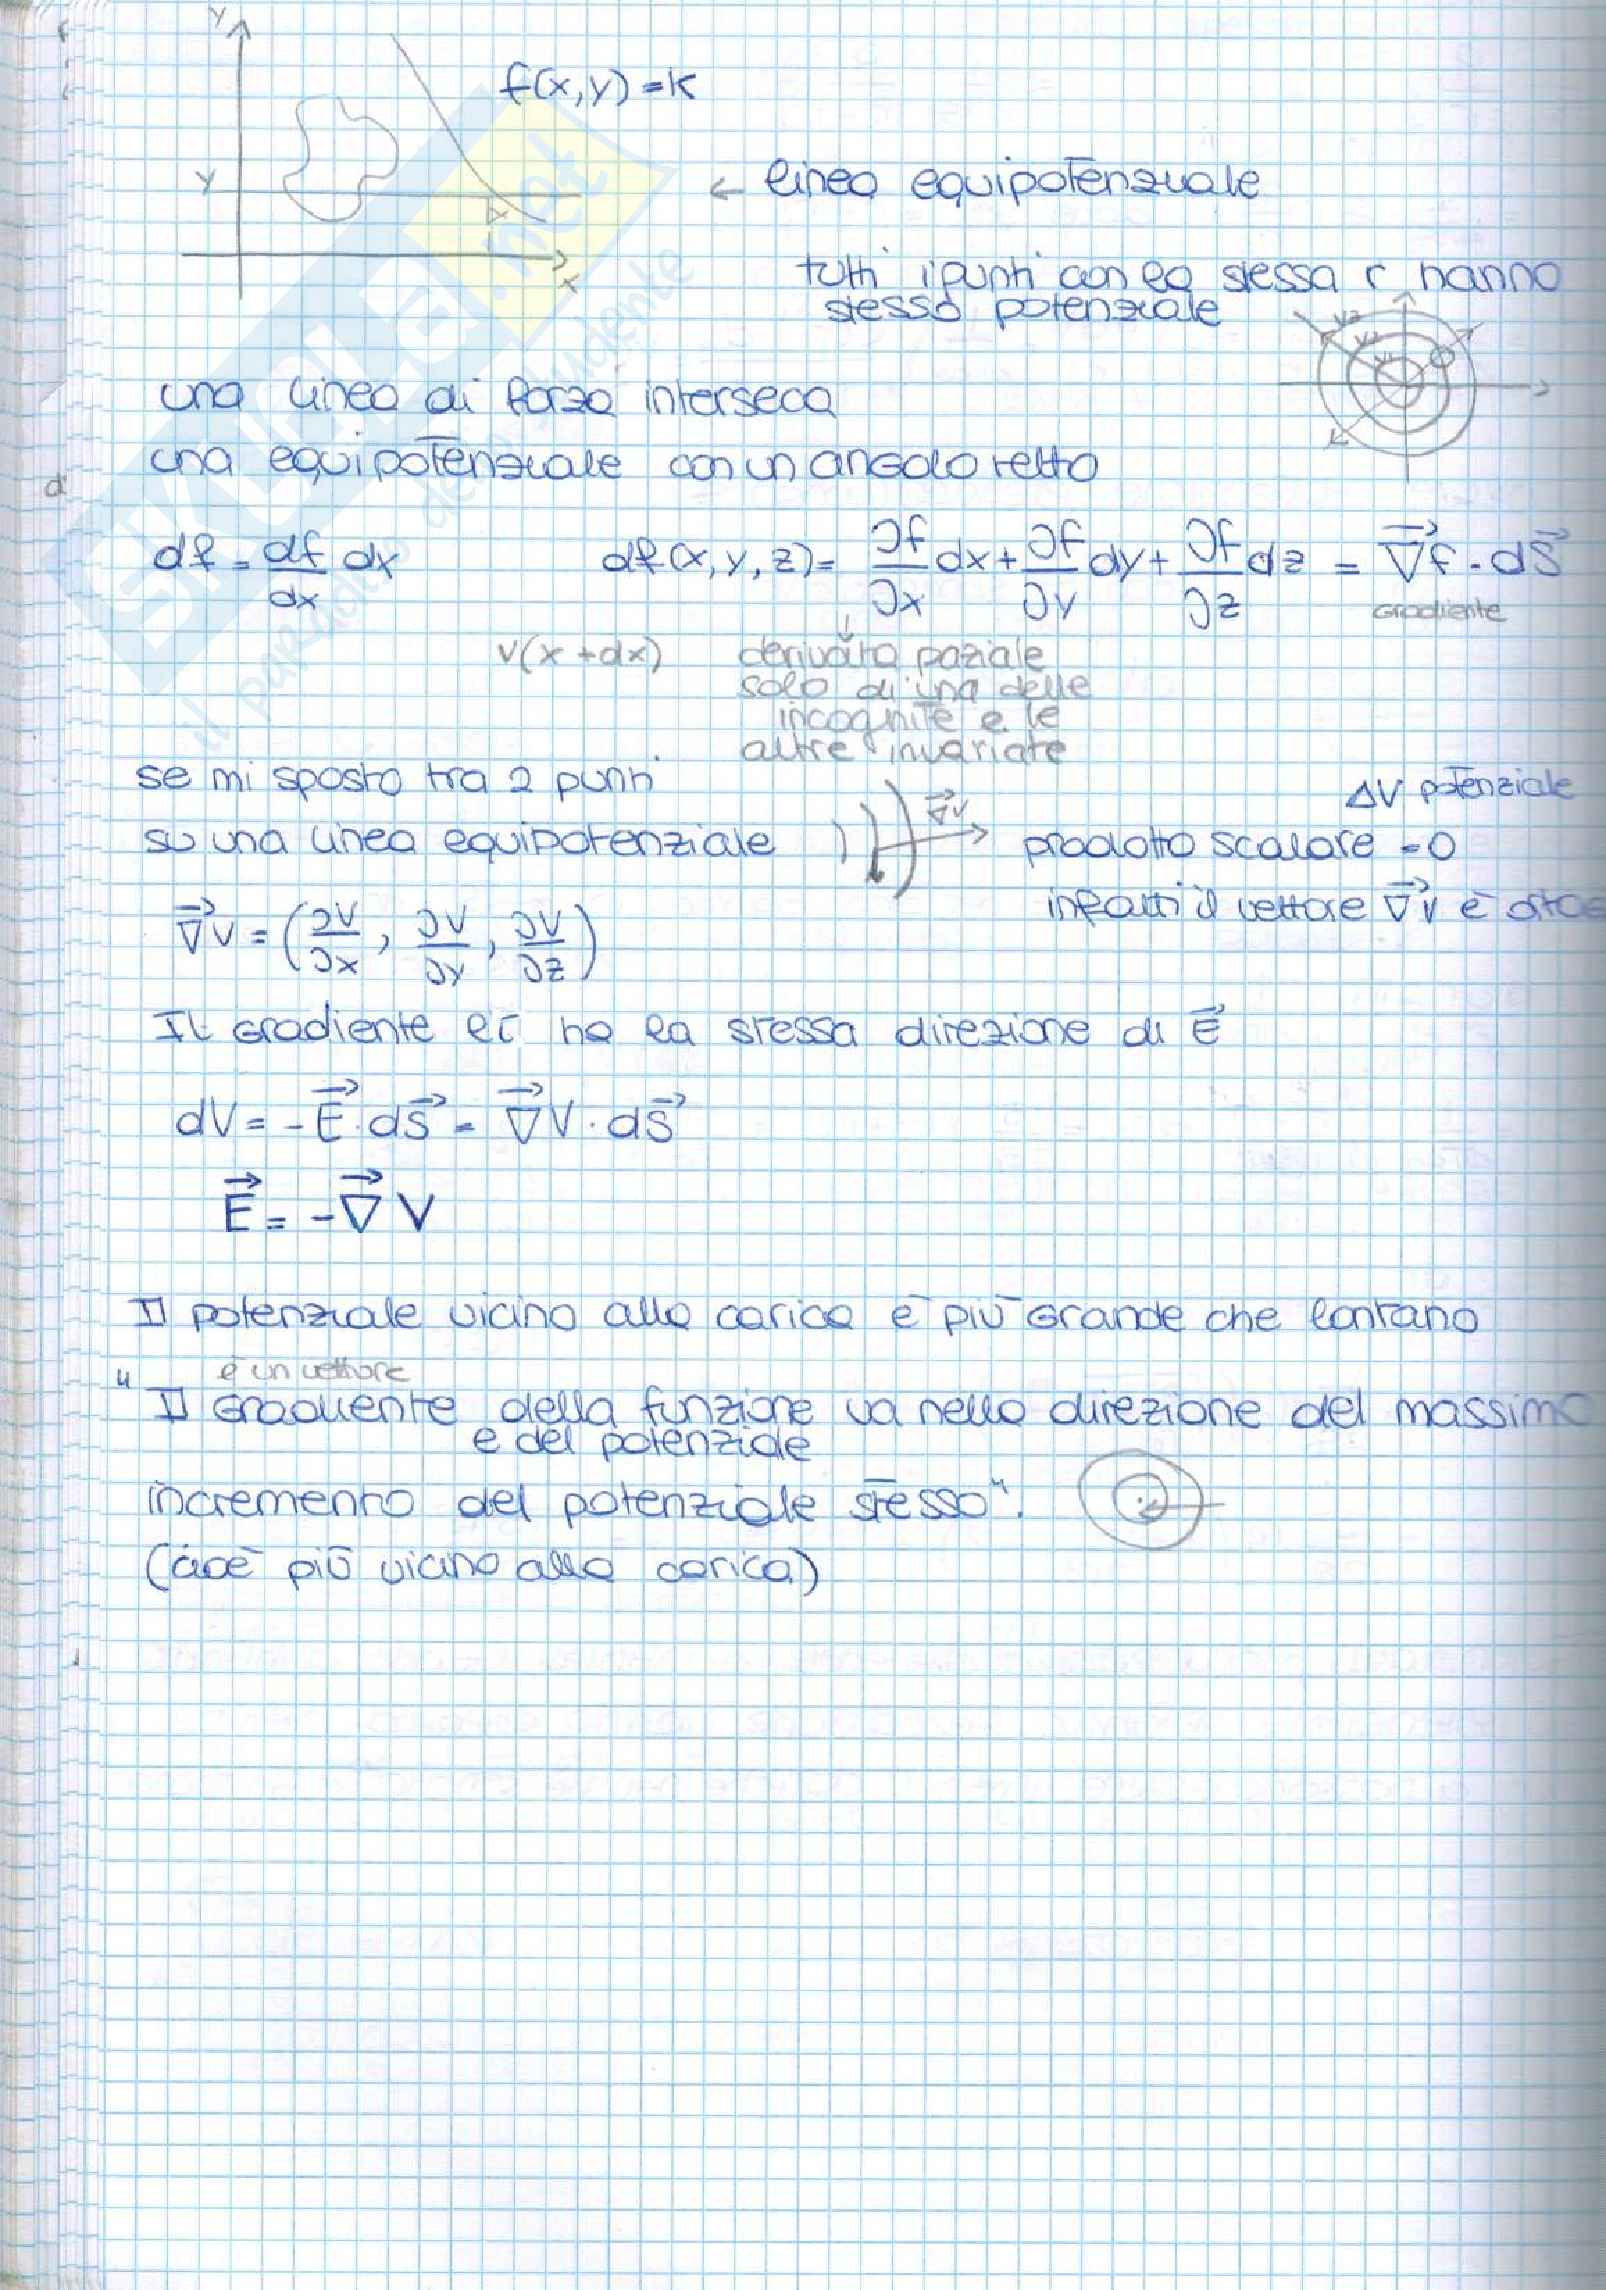 y
f(x,y)=k
y
← linea equipotenziale
x
tutti i punti con la stessa r hanno
stesso potenziale
una linea di forza interseca
una equipotenziale con un angolo retto
d
df = df/dx dx   df(x,y,z)= ∂f/∂x dx + ∂f/∂y dy + ∂f/∂z dz = ∇⃗f · ds⃗
Gradiente
v(x+dx)
derivata paziale
solo di una delle
incognite e le
altre invariate
se mi sposto tra 2 punti
ΔV potenziale
su una linea equipotenziale
∇⃗V
prodotto scalare = 0
infatti il vettore ∇⃗V è
∇⃗V = (∂V/∂x, ∂V/∂y, ∂V/∂z)
Il Gradiente ha la stessa direzione di E⃗
dV = -E⃗·ds⃗ = ∇⃗V·ds⃗
E⃗ = -∇⃗V
Il potenziale vicino alla carica è più Grande che lontano
è un vettore
"Il Gradiente della funzione va nella direzione del massimo
e del potenziale
incremento del potenziale stesso".
(cioè più vicino alla carica)
SKUOLA.net
il paradiso dello studente